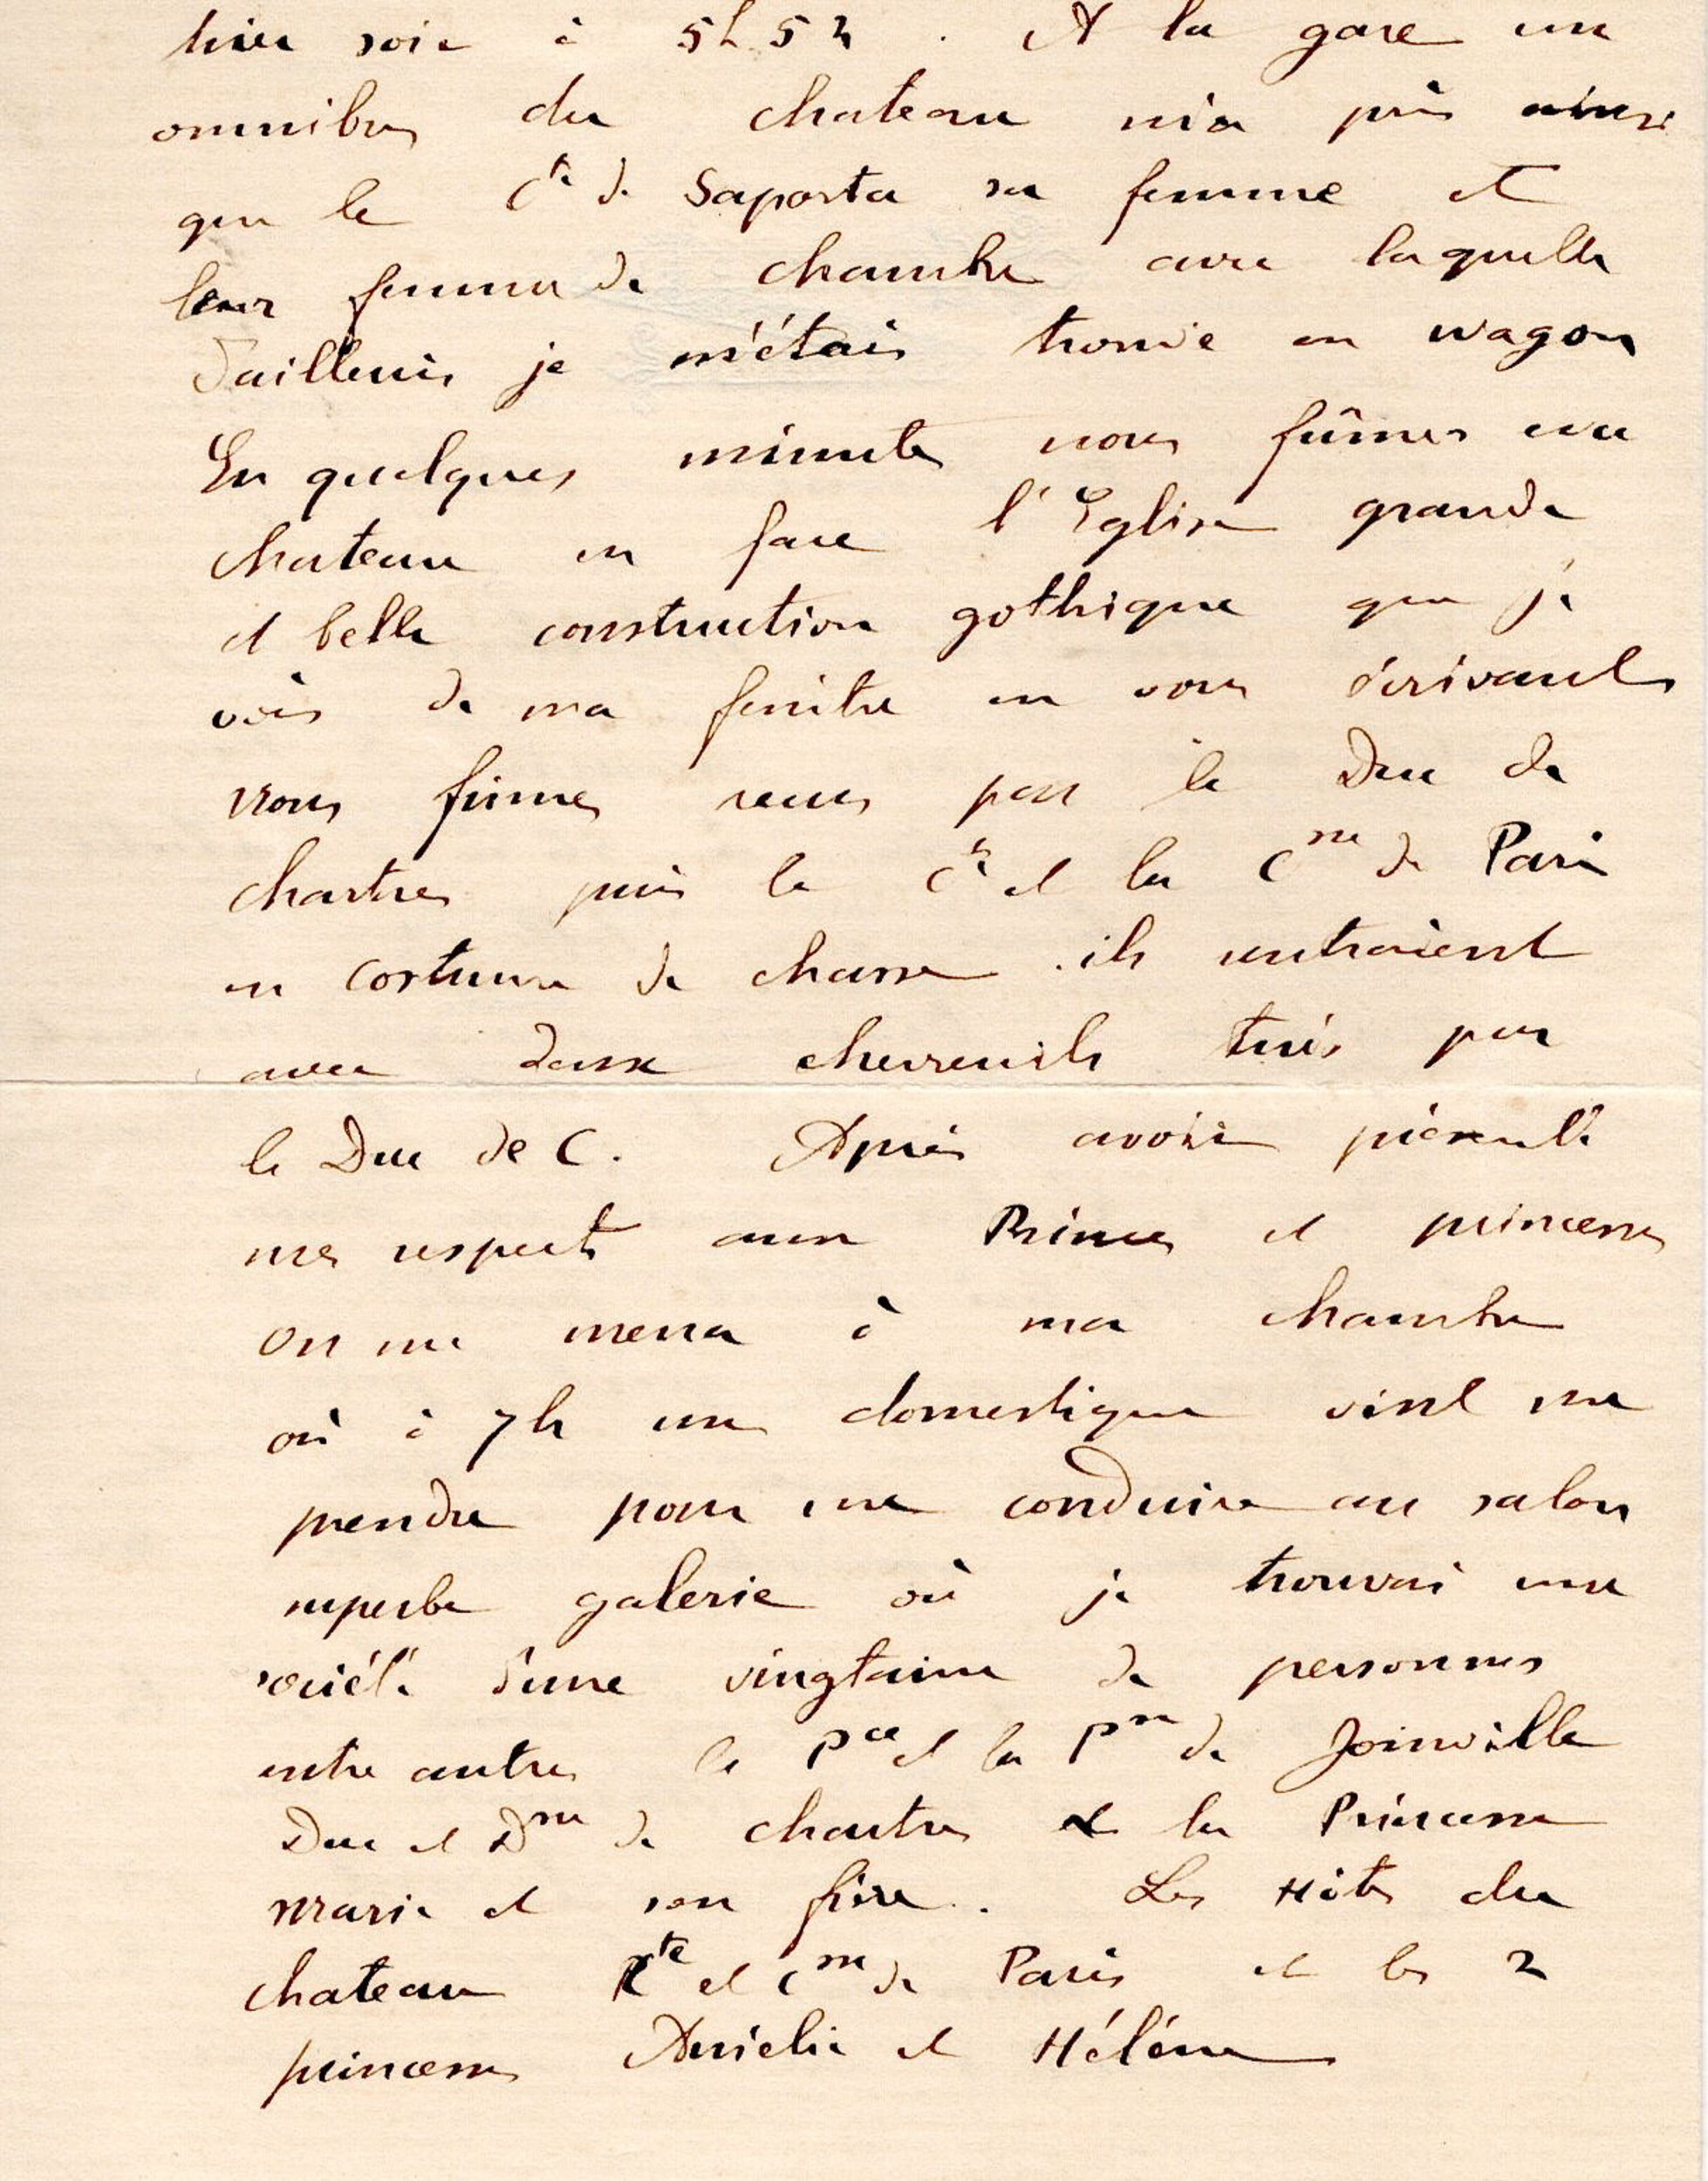 hier soir à 5h 52. A la gare un
omnibus du chateau m'a pris ainsi
que le Cte de Saporta sa femme et
leur femme de chambre avec laquelle
d'ailleurs je m'étais trouvé en wagon
En quelques minutes nous fûmes au
chateau en face l'Eglise grande
et belle construction gothique que je
vois de ma fenêtre en vous écrivant
nous fûmes recus par le Duc de
Chartres puis le Cte et la Csse de Paris
en costume de chasse. ils rentraient
avec deux chevreuils tués par
le Duc de C. Après avoir présenté
mes respects aux Princes et princesses
on me mena à ma chambre
où à 7h un domestique vint me
prendre pour me conduire au salon
superbe galerie où je trouvai une
société d'une vingtaine de personnes
entre autres le Pce et la Psse de Joinville
Duc et Dsse de Chartres et la Princesse
Marie et son frère. Les Hôtes du
chateau Cte et Csse de Paris et les 2
princesses Amélie et Hélène